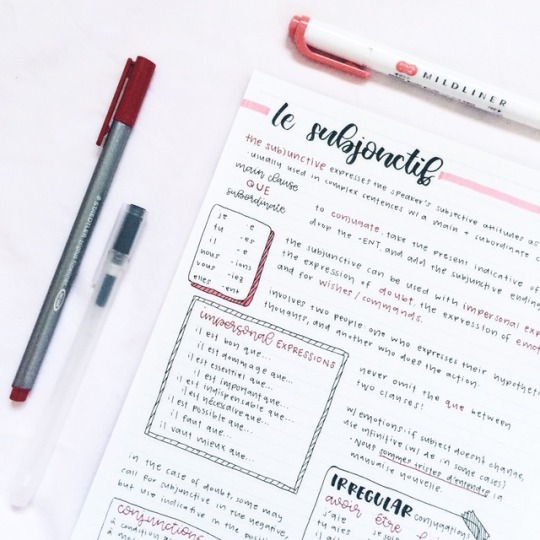 MILDLINER
STAEDTLER
le subjonctif
the subjunctive expresses the speaker's subjective attitudes as
usually used in complex sentences w/ a main + subordinate c
main clause
QUE
subordinate
je -e
tu -es
il -e
nous -ions
vous -iez
elles -ent
to conjugate, take the present indicative of
drop the -ENT and add the subjunctive ending
the subjunctive can be used with impersonal exp
the expression of doubt, the expression of emot
and for wishes/commands.
involves two people: one who expresses their hypothetic
thoughts, and another who does the action.
impersonal EXPRESSIONS
il est bon que...
il est dommage que...
il est essentiel que...
il est important que...
il est indispensable que...
il est nécessaire que...
il est possible que...
il faut que...
il vaut mieux que...
never omit the que between
two clauses!
w/ emotions: if subject doesn't change,
use infinitive (w/ de in some cases)
· Nous sommes tristes d'entendre la
mauvaise nouvelle.
in the case of doubt, some may
call for subjunctive in the negative,
but use indicative in the positi
IRREGULAR conjugations
avoir être
j'aie je soi
tu aies
il ai
conjunctions
à condition
à moi